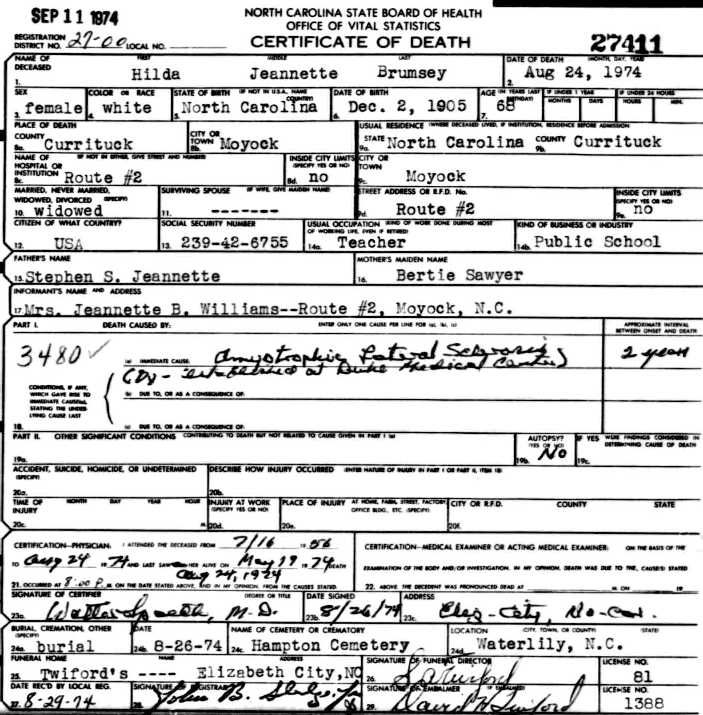 SEP 11 1974
NORTH CAROLINA STATE BOARD OF HEALTH
OFFICE OF VITAL STATISTICS
CERTIFICATE OF DEATH
REGISTRATION DISTRICT NO. 27-00 LOCAL NO.
27411
NAME OF DECEASED FIRST MIDDLE LAST DATE OF DEATH (MONTH, DAY, YEAR)
1. Hilda Jeannette Brumsey 2. Aug 24, 1974
SEX COLOR OR RACE STATE OF BIRTH (IF NOT IN U.S.A., NAME COUNTRY) DATE OF BIRTH AGE (IN YEARS LAST BIRTHDAY) IF UNDER 1 YEAR MONTHS DAYS IF UNDER 24 HOURS HOURS MIN.
3. female 4. white 5. North Carolina 6. Dec. 2, 1905 7. 68
PLACE OF DEATH USUAL RESIDENCE (WHERE DECEASED LIVED, IF INSTITUTION, RESIDENCE BEFORE ADMISSION)
COUNTY 8a. Currituck CITY OR TOWN 8b. Moyock STATE 9a. North Carolina COUNTY 9b. Currituck
NAME OF HOSPITAL OR INSTITUTION (IF NOT IN EITHER, GIVE STREET AND NUMBER) 8c. Route #2 INSIDE CITY LIMITS (SPECIFY YES OR NO) 8d. no CITY OR TOWN 9c. Moyock
MARRIED, NEVER MARRIED, WIDOWED, DIVORCED (SPECIFY) 10. widowed SURVIVING SPOUSE (IF WIFE, GIVE MAIDEN NAME) 11. ------- STREET ADDRESS OR R.F.D. No. 9d. Route #2 INSIDE CITY LIMITS (SPECIFY YES OR NO) 9e. no
CITIZEN OF WHAT COUNTRY? SOCIAL SECURITY NUMBER USUAL OCCUPATION (KIND OF WORK DONE DURING MOST OF WORKING LIFE, EVEN IF RETIRED) KIND OF BUSINESS OR INDUSTRY
12. USA 13. 239-42-6755 14a. Teacher 14b. Public School
FATHER'S NAME MOTHER'S MAIDEN NAME
15. Stephen S. Jeannette 16. Bertie Sawyer
INFORMANT'S NAME AND ADDRESS
17. Mrs. Jeannette B. Williams--Route #2, Moyock, N.C.
PART I. DEATH CAUSED BY: ENTER ONLY ONE CAUSE PER LINE FOR (a), (b), (c) APPROXIMATE INTERVAL BETWEEN ONSET AND DEATH
3480 ✓ (a) IMMEDIATE CAUSE: Amyotrophic Lateral Sclerosis 2 years
(DX - established at Duke Medical Center)
CONDITIONS, IF ANY, WHICH GAVE RISE TO IMMEDIATE CAUSE(a), STATING THE UNDERLYING CAUSE LAST
(b) DUE TO, OR AS A CONSEQUENCE OF:
18. (c) DUE TO, OR AS A CONSEQUENCE OF:
PART II. OTHER SIGNIFICANT CONDITIONS CONTRIBUTING TO DEATH BUT NOT RELATED TO CAUSE GIVEN IN PART I (a) AUTOPSY? (YES OR NO) IF YES WERE FINDINGS CONSIDERED IN DETERMINING CAUSE OF DEATH
19a. 19b. No 19c.
ACCIDENT, SUICIDE, HOMICIDE, OR UNDETERMINED (SPECIFY) DESCRIBE HOW INJURY OCCURRED (ENTER NATURE OF INJURY IN PART I OR PART II, ITEM 18)
20a. 20b.
TIME OF INJURY MONTH DAY YEAR HOUR INJURY AT WORK (SPECIFY YES OR NO) PLACE OF INJURY AT HOME, FARM, STREET, FACTORY OFFICE BLDG., ETC. (SPECIFY) CITY OR R.F.D. COUNTY STATE
20c. M. 20d. 20e. 20f.
CERTIFICATION—PHYSICIAN: I ATTENDED THE DECEASED FROM 7/16 1956 CERTIFICATION—MEDICAL EXAMINER OR ACTING MEDICAL EXAMINER: ON THE BASIS OF THE
TO Aug 24 1974 AND LAST SAW HER ALIVE ON May 19 1974 DEATH EXAMINATION OF THE BODY AND/OR INVESTIGATION, IN MY OPINION, DEATH WAS DUE TO THE CAUSE(S) STATED
Aug 24, 1974
21. OCCURRED AT 8:00 P. M. ON THE DATE STATED ABOVE, AND IN MY OPINION, FROM THE CAUSES STATED 22. ABOVE. THE DECEDENT WAS PRONOUNCED DEAD AT M. ON 19
SIGNATURE OF CERTIFIER DEGREE OR TITLE DATE SIGNED ADDRESS
23a. M.D. 23b. 8/26/74 23c. Eliz-City, No-Car.
BURIAL, CREMATION, OTHER (SPECIFY) DATE NAME OF CEMETERY OR CREMATORY LOCATION (CITY, TOWN, OR COUNTY) (STATE)
24a. burial 24b. 8-26-74 24c. Hampton Cemetery 24d. Waterlily, N.C.
FUNERAL HOME NAME ADDRESS SIGNATURE OF FUNERAL DIRECTOR LICENSE NO.
25. Twiford's ---- Elizabeth City, NC 26. 81
DATE REC'D BY LOCAL REG. SIGNATURE REGISTRAR SIGNATURE OF EMBALMER (IF EMBALMED) LICENSE NO.
27. 8-29-74 John B. 29. David Twiford 1388